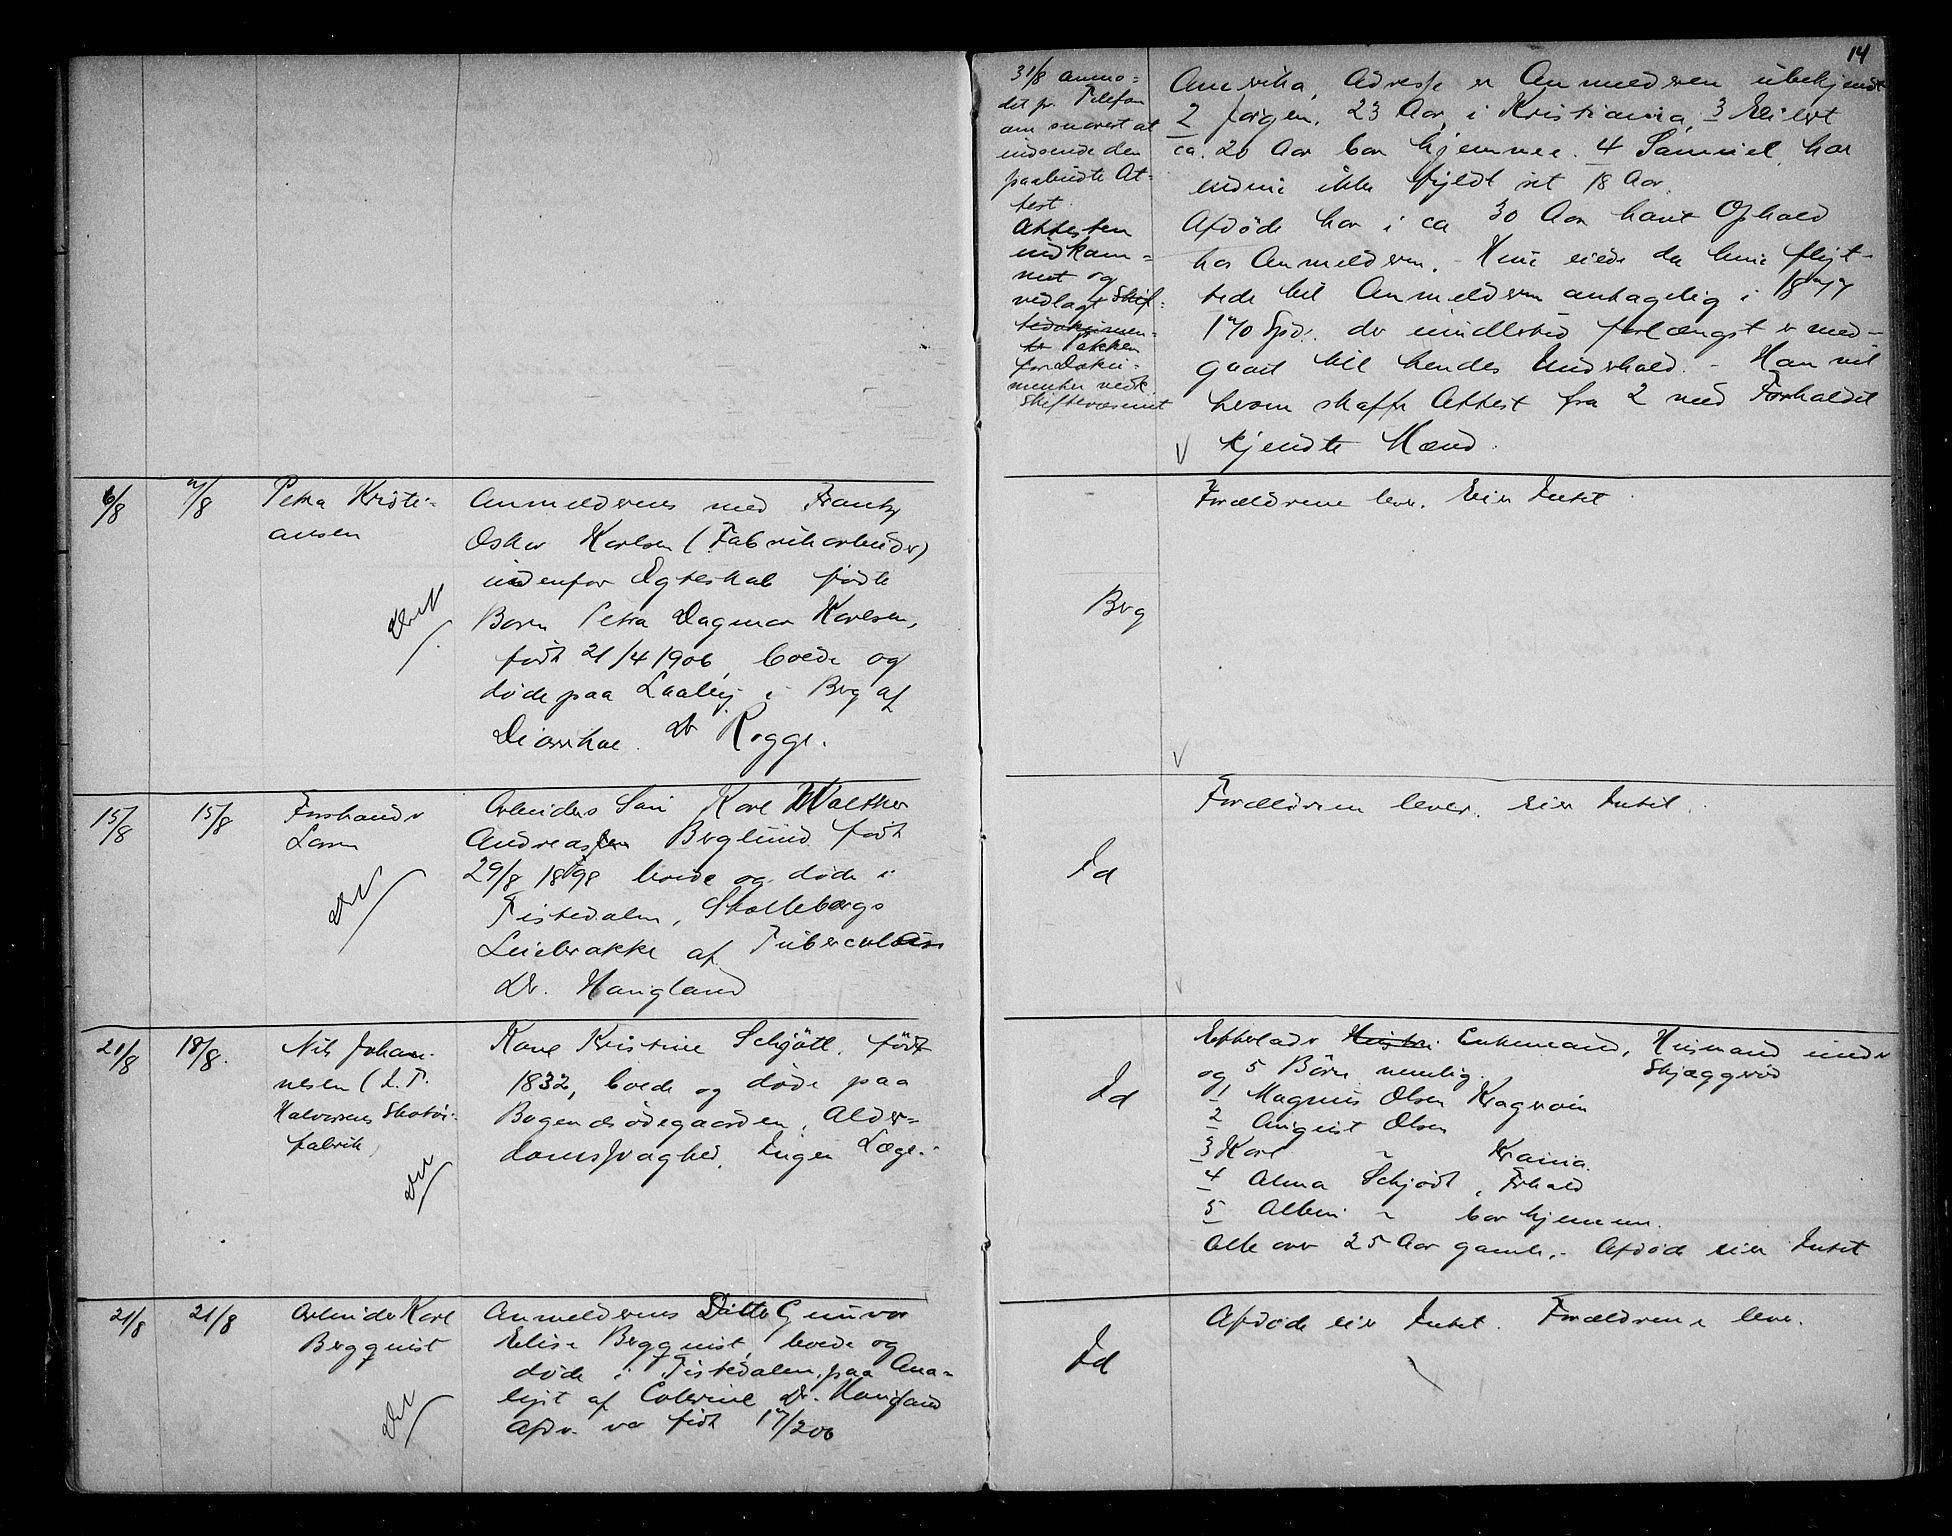 14
31/8 anmo=
det pr. Telefon
om snarest at
indsende den
paabudte At-
test.
Attesten
indkom=
met og
vedlagt Skif=
tedokumen-
ter Pakken
for Doku-
menter vedk.
Skiftevæsenet
Amerika, Adresse er Anmelderen ubekjendt
2 Jørgen, 23 Aar, i Kristiania, 3 Eilert
ca. 20 Aar bor hjemme. 4 Samuel, har
endnu ikke fyldt sit 18 Aar.
Afdøde har i ca 30 Aar havt Ophold
hos Anmelderen. - Hun eiede da hun flyt-
tede til Anmelderen antagelig i 1877
170 Spd. der imidlertid forlængst er med-
gaaet til hendes Underhold. - Han vil
herom skaffe Attest fra 2 med Forholdet
kjendte Mænd.
6/8 7/8 Petra Kristi-
ansen
Anmelderens med Frants
Oskar Karlsen (Fabrikarbeider)
udenfor Egteskab fødte
Barn Petra Dagmar Karlsen,
født 21/4 1906, boede og
døde paa Laaby i Brg af
Diarrhoe. Dr Rogge.
Brg
Forældrene lever. Eier Intet
15/8 15/8 Forhandler
Larsen
Arbeiders Søn Karl Walther
Andreassen Berglund født
29/8 1898 boede og døde i
Tistedalen, Skollebergs
Leiebrakke af Tuberculose
Dr. Haugland
Id
Forældrene lever. Eier Intet.
21/8 18/8. Nils Johan-
nesen (L.P.
Halvorsens Skotøi-
fabrik)
Kone Kristine Schjøtt, født
1832, boede og døde paa
Bagendsødegaarden, Alder=
domssvaghed, Ingen Læge.-
Id
Efterlader Hustru Enkemand, Husmand under
Skjæggerød
og 5 Børn nemlig
1 Magnus Olsen Kragerøen
2 August Olsen
3 Karl - Krania.
4 Alma Schjødt, Frhald
5 Albin - bor hjemme.
Alle over 25 Aar gamle. - Afdøde eier Intet
21/8 21/8 Arbeider Karl
Bergquist
Anmelderens Datter Gunvor
Elise Bergquist, boede og
døde i Tistedalen, paa Ana-
lyst af Colerine Dr. Haugland
Afdø. var født 17/2 06
Id
Afdøde eier Intet. Forældrene lever.